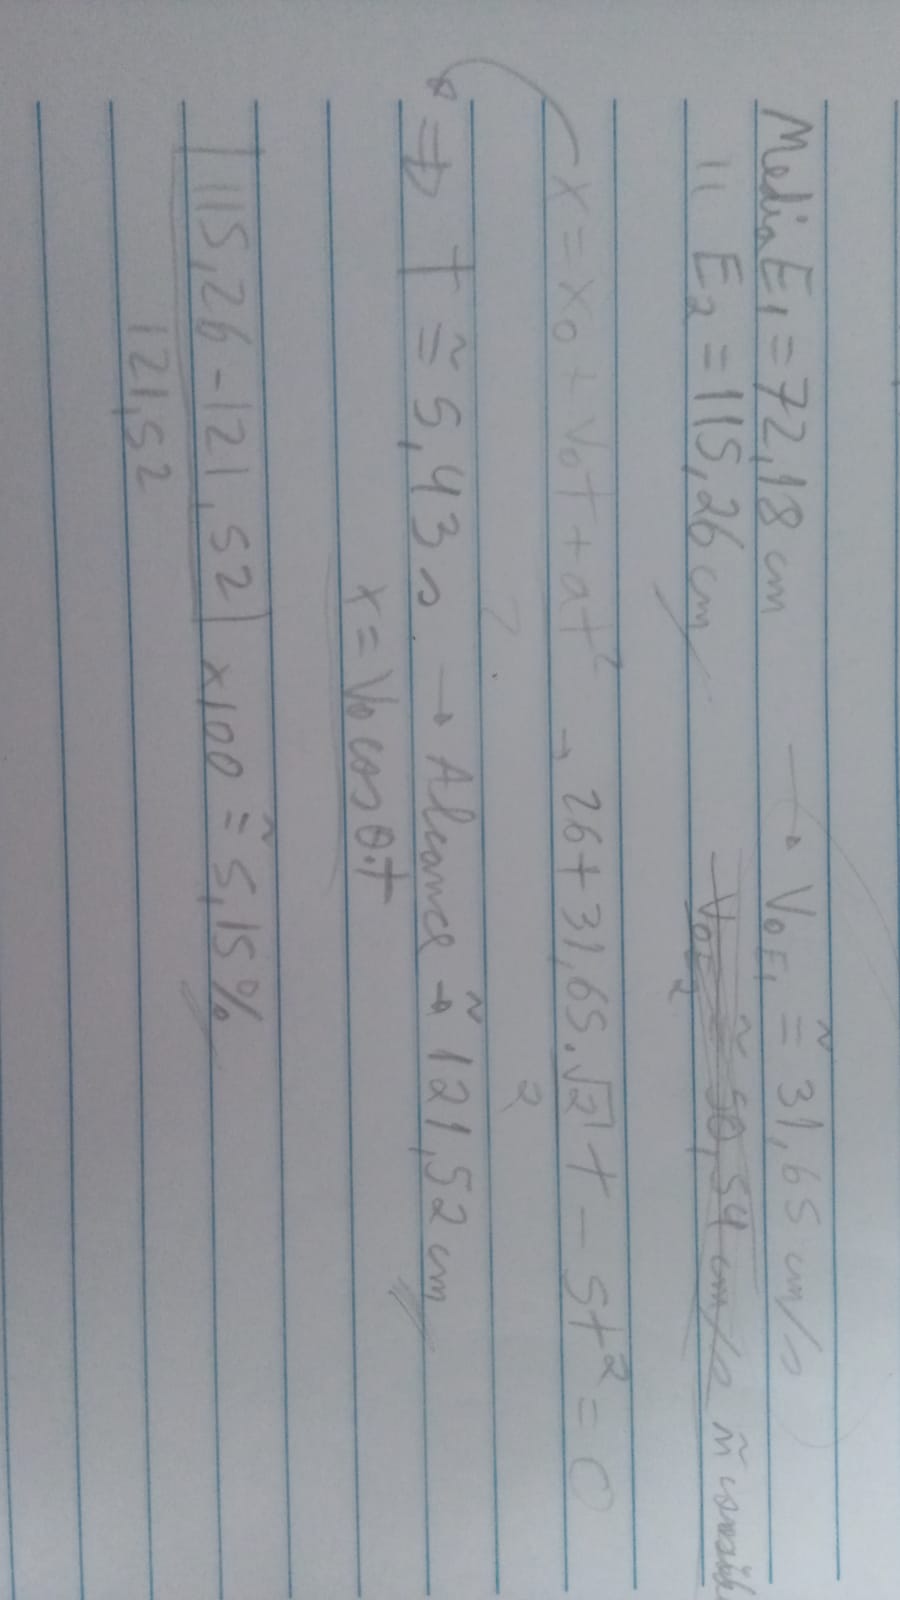 Media E1 = 72,18 cm → V0E1 ≅ 31,65 cm/s
11 E2 = 115,26 cm V0E2 ≅ 50,54 cm/s ñ
x = x0 + v0t + at²/2 → 26 + 31,65.√2/2 t - 5t² = 0
⇒ t ≅ 5,43 s → Alcance ≅ 121,52 cm
x = V0 cos θ.t
|115,26 - 121,52| x100 ≅ 5,15%
121,52